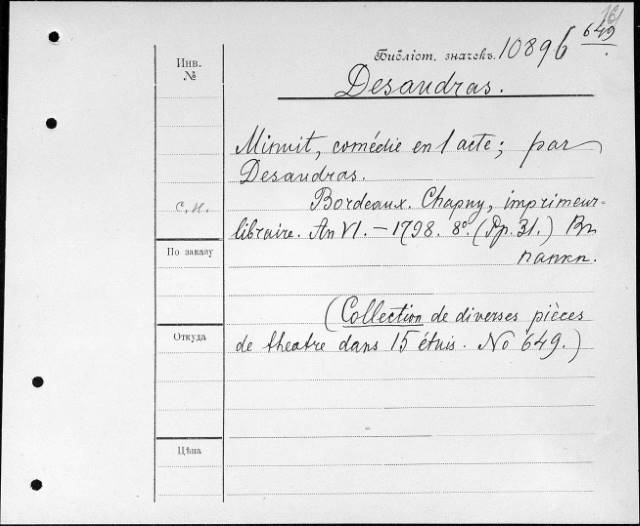 649
Библіот. значекъ. 10896
Инв.
№
Desaudras.
Minuit, comédie en 1 acte; par
Desaudras.
с.н.
Bordeaux. Chapuy, imprimeur-
libraire. An VI. — 1798. 8º. (Pp. 31.) Въ
папкѣ.
По заказу
(Collection de diverses pièces
Откуда
de theatre dans 15 étuis. No 649.)
Цѣна